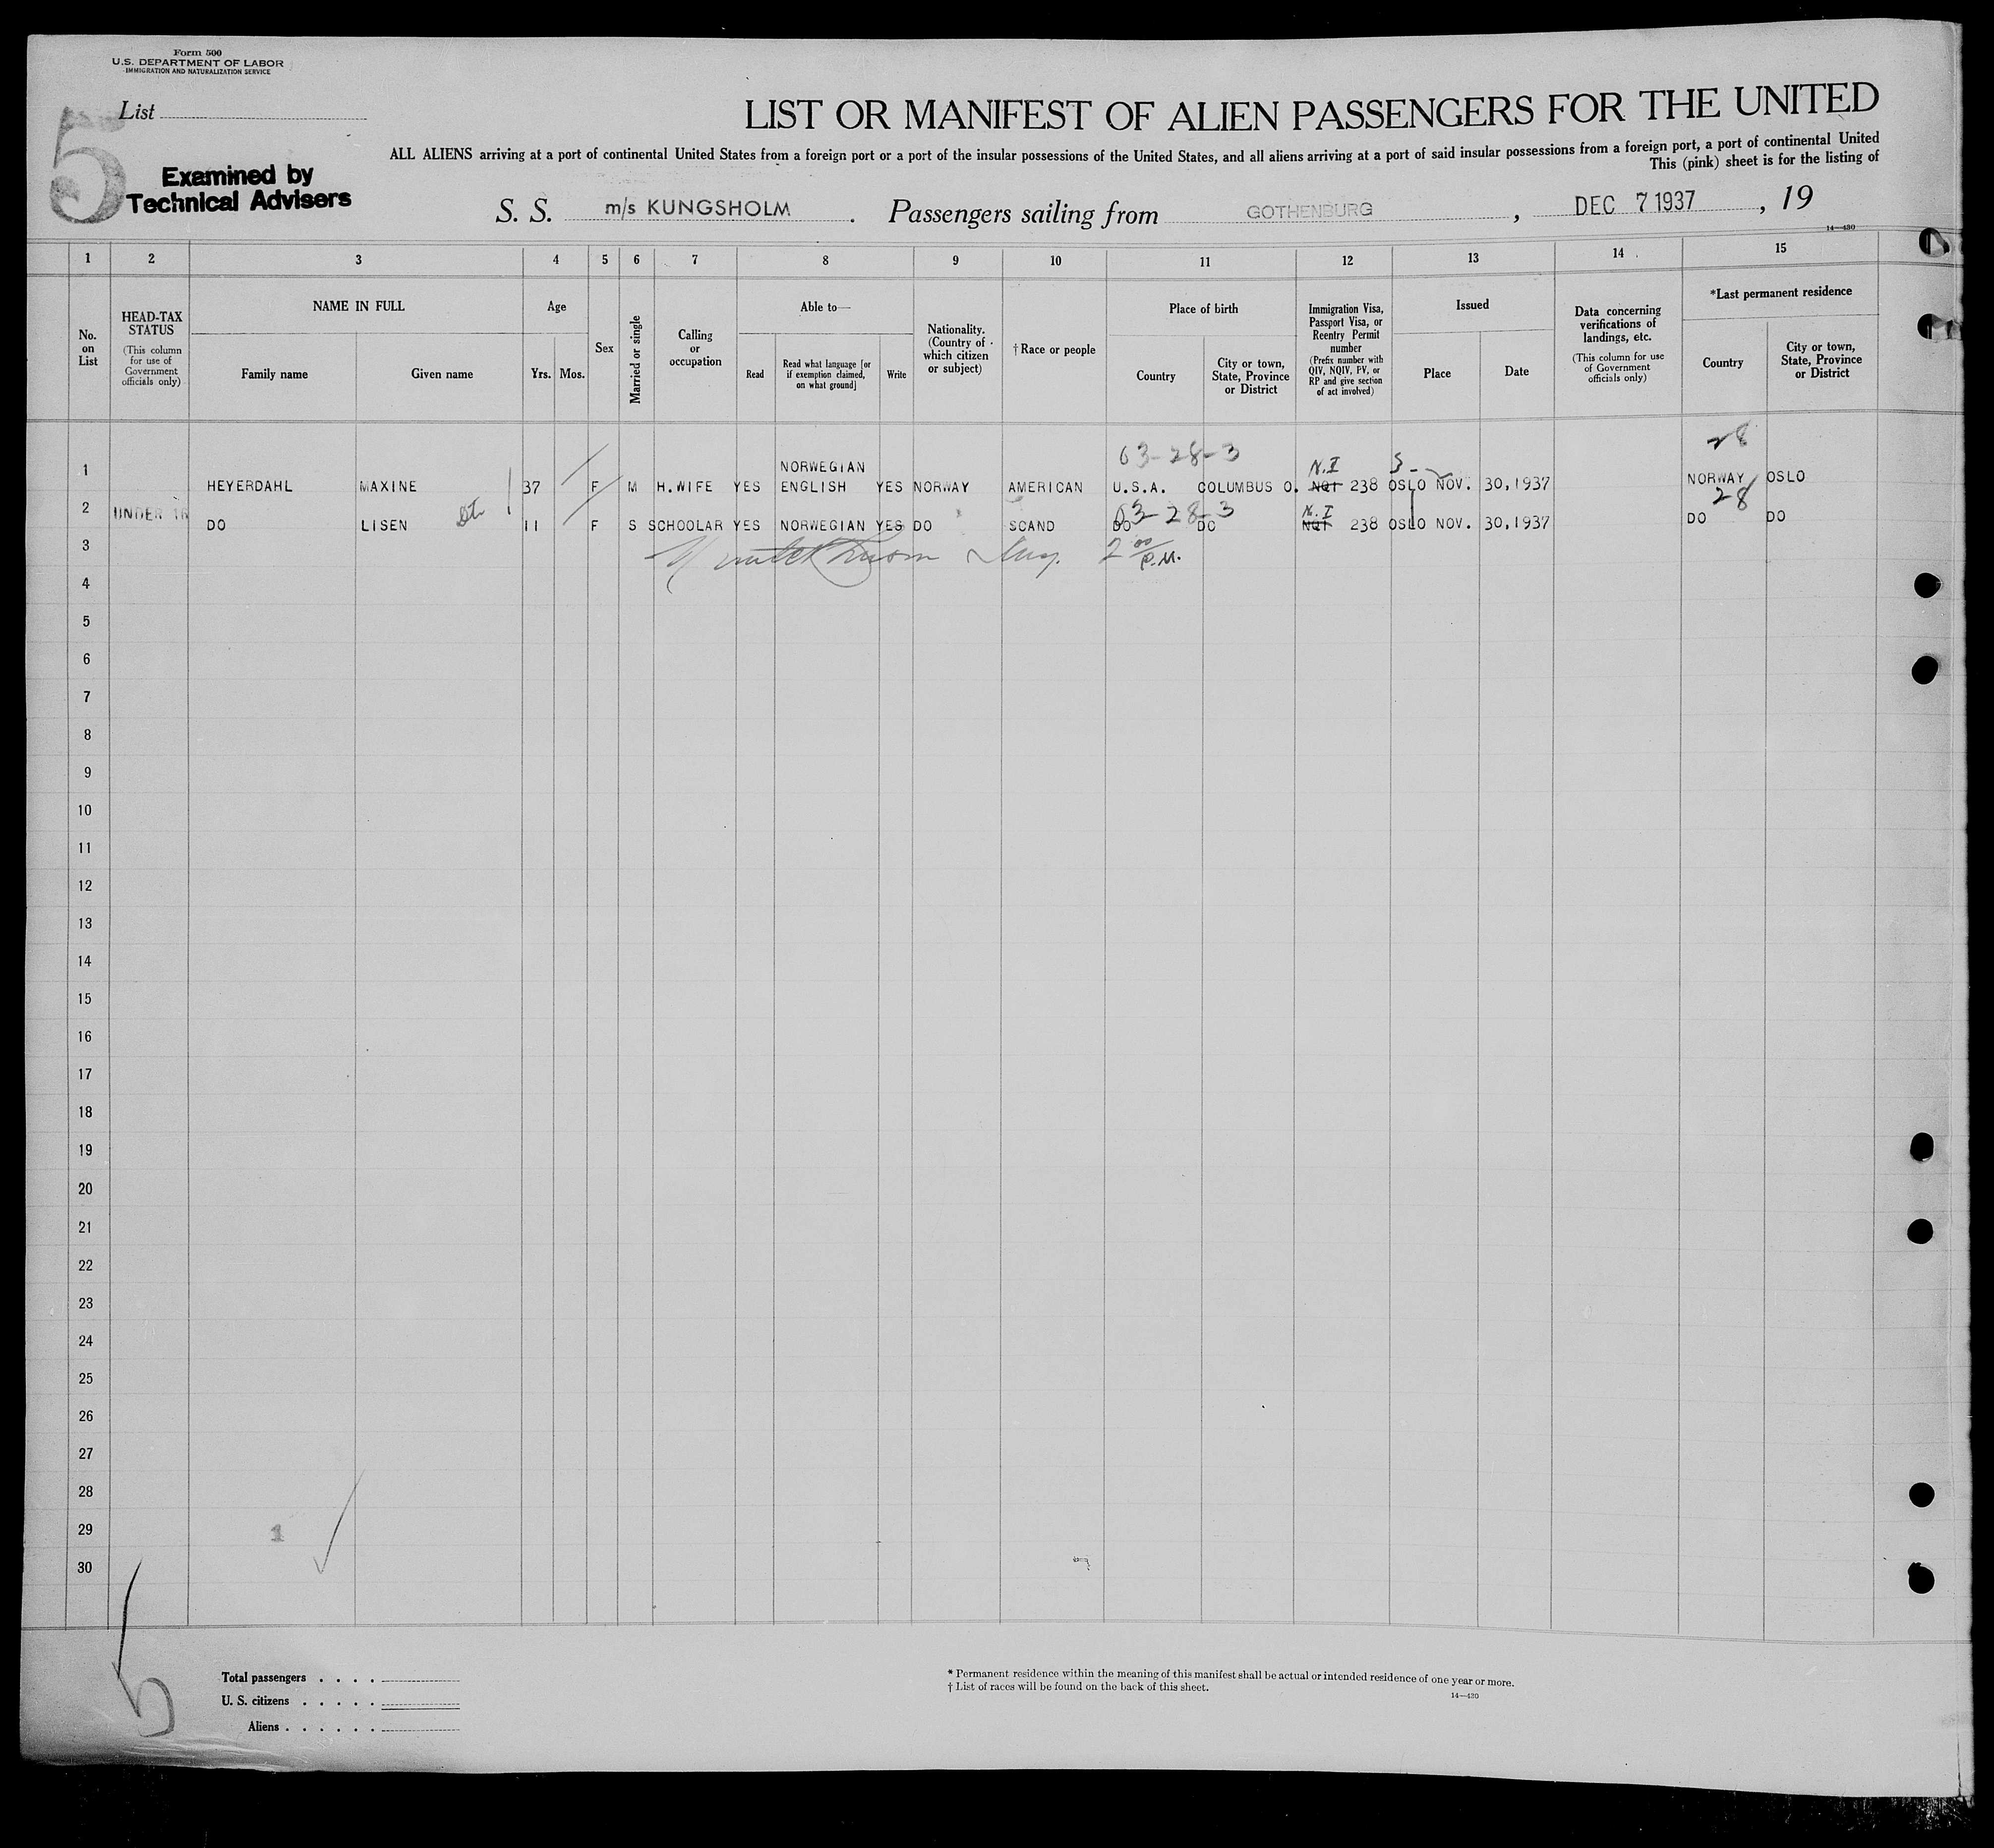 Form 500
U.S. DEPARTMENT OF LABOR
IMMIGRATION AND NATURALIZATION SERVICE
List
5
Examined by
Technical Advisers
LIST OR MANIFEST OF ALIEN PASSENGERS FOR THE UNITED
ALL ALIENS arriving at a port of continental United States from a foreign port or a port of the insular possessions of the United States, and all aliens arriving at a port of said insular possessions from a foreign port, a port of continental United
This (pink) sheet is for the listing of
S. S. m/s KUNGSHOLM . Passengers sailing from GOTHENBURG , DEC 7 1937 , 19
14—430
1 2 3 4 5 6 7 8 9 10 11 12 13 14 15
No. on List
HEAD-TAX STATUS
(This column for use of Government officials only)
NAME IN FULL
Family name
Given name
Age
Yrs.
Mos.
Sex
Married or single
Calling or occupation
Able to—
Read
Read what language [or if exemption claimed, on what ground]
Write
Nationality. (Country of which citizen or subject)
†Race or people
Place of birth
Country
City or town, State, Province or District
Immigration Visa, Passport Visa, or Reentry Permit number
(Prefix number with QIV, NQIV, PV, or RP and give section of act involved)
Issued
Place
Date
Data concerning verifications of landings, etc.
(This column for use of Government officials only)
*Last permanent residence
Country
City or town, State, Province or District
03-28-3
28
NORWEGIAN
N.I
1 HEYERDAHL MAXINE 37 F M H.WIFE YES ENGLISH YES NORWAY AMERICAN U.S.A. COLUMBUS O. NQI 238 OSLO NOV. 30,1937 NORWAY OSLO
03-28-3
N.I
28
2 UNDER 16 DO LISEN 11 F S SCHOOLAR YES NORWEGIAN YES DO SCAND DO DO NQI 238 OSLO NOV. 30,1937 DO DO
3
2 00 P.M.
4
5
6
7
8
9
10
11
12
13
14
15
16
17
18
19
20
21
22
23
24
25
26
27
28
29 1
30
5
Total passengers . . . .
U. S. citizens . . . . .
Aliens . . . . . .
* Permanent residence within the meaning of this manifest shall be actual or intended residence of one year or more.
† List of races will be found on the back of this sheet.
14—430